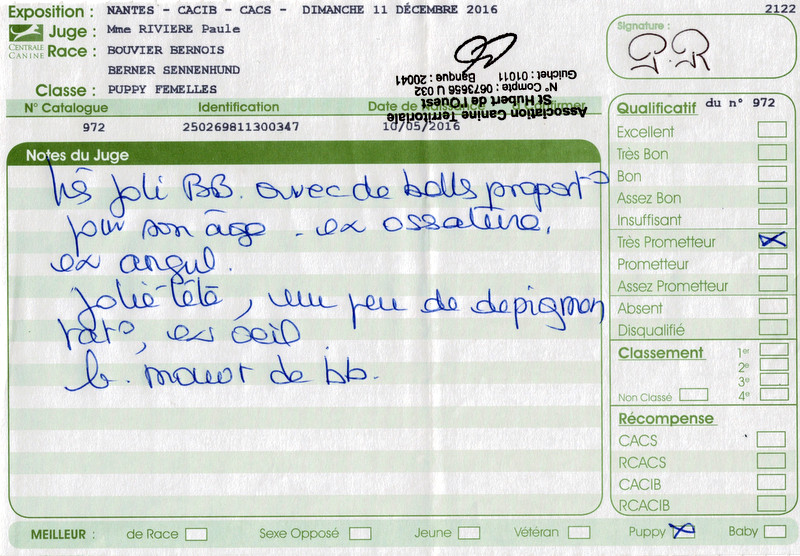 Exposition : NANTES - CACIB - CACS - DIMANCHE 11 DÉCEMBRE 2016 2122
CENTRALE CANINE
Juge : Mme RIVIERE Paule
Race : BOUVIER BERNOIS
BERNER SENNENHUND
Classe : PUPPY FEMELLES
Signature :
P.R
Association Canine Territoriale
St Hubert de l'Ouest
N° Compte : 0673656 U 032
Guichet : 01011
Banque : 20041
N° Catalogue Identification Date de Naissance A Confirmer
972 250269811300347 10/05/2016
Notes du Juge
très joli BB. avec de bells proport°
pour son âge - ex ossature,
ex angul.
jolie tête, un peu de depigmen
tat°, ex oeil.
b. mouvt de bb.
Qualificatif du n° 972
Excellent
Très Bon
Bon
Assez Bon
Insuffisant
Très Prometteur
Prometteur
Assez Prometteur
Absent
Disqualifié
Classement 1er
2e
3e
Non Classé 4e
Récompense
CACS
RCACS
CACIB
RCACIB
MEILLEUR : de Race Sexe Opposé Jeune Vétéran Puppy Baby